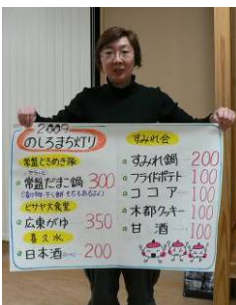 2009
のしろまち灯り
常盤ときめき隊
常盤だまこ鍋 300
ピサヤ大食堂
広東がゆ 350
喜久水
日本酒 200
すみれ会
すみれ鍋 200
フライドポテト 100
ココア 100
木都クッキー 100
甘酒 100